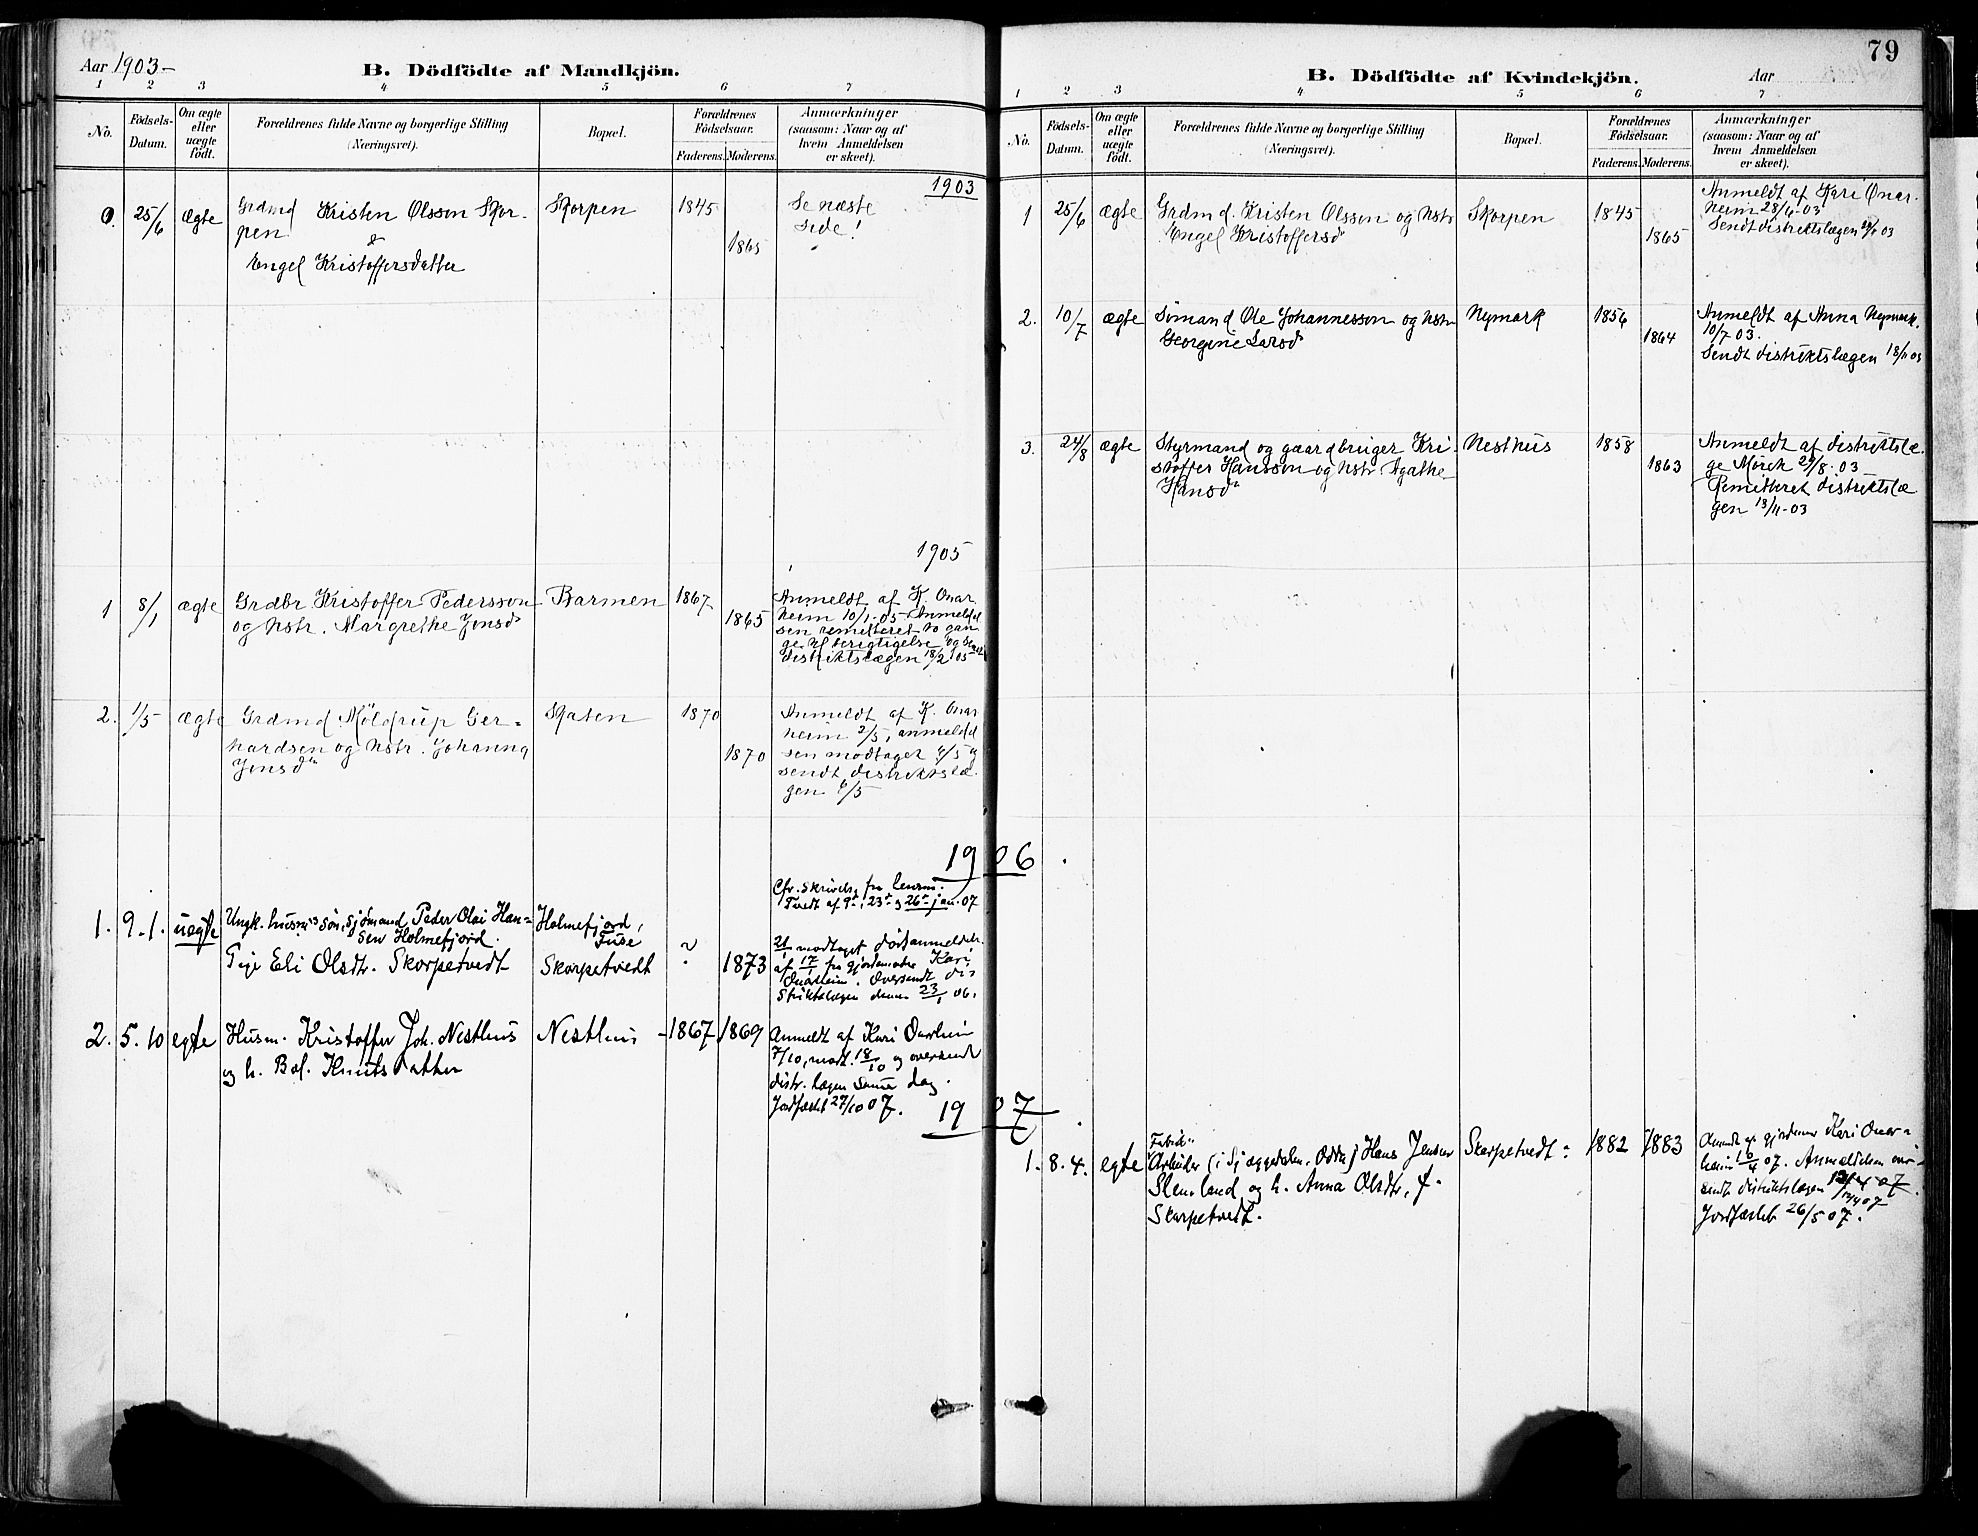 Aar 1903-
B. Dödfödte af Mandkjön.
1 2 3 4 5 6 7
No.
Födsels-
Datum.
Om ægte
eller
uægte
födt.
Forældrenes fulde Navne og borgerlige Stilling
(Næringsvei).
Bopæl.
Forældrenes
Födselsaar.
Faderens. Moderens.
Anmærkninger
(saasom: Naar og af
hvem Anmeldelsen
er skeet).
1903
0. 25/6 ægte Grdmd Kristen Olsson Skor- Skorpen 1845 Se næste
pen & 1865 side!
Engel Kristoffersdatter
1905
1 8/1 ægte Grdbr Kristoffer Pedersson Barmen 1867 Anmeldt af K. Onar
og hstr. Margrethe Jensd 1865 heim 10/1-05 Anmeldel
sen remitteret to gan
ge til berigtigelse og sendt
distriktslægen 18/2 05
2. 1/5 ægte Grdmd Möldrup Ger- Skaten 1870 Anmeldt af K. Onar
hardsen og hstr. Johanna 1870 heim 2/5, anmeldel
Jensd sen modtaget
sendt distriktslæ-
gen /5
1906
Cfr. skrivelse fra lensm.
Tvedt af 9de, 23de & 26de jan. 07
1. 9.1. uegte Ungk. husmds søn, sjømand Peder Olai Han- Holmefjord,
sen Holmefjord. Fuse ?
Pige Eli Olsdtr. Skorpetvedt Skorpetvedt 1873
modtaget dødsanmeldels.
af 17/1 fra gjordemoder Kari
Onarheim. Oversendt di-
striktslægen denne 23/1 06.
2. 5.10 egte Husm. Kristoffer Joh. Nesthus Nesthus - 1867 1869 Anmeldt af Kari Onarheim
og h. Knutsdatter 7/10, modt. 18/10 og oversendt
distr.lægen samme dag.
Jordfæstet 27/10 07.
1907
79
B. Dödfödte af Kvindekjön.
Aar
1 2 3 4 5 6 7
No.
Födsels-
Datum.
Om ægte
eller
uægte
födt.
Forældrenes fulde Navne og borgerlige Stilling
(Næringsvei).
Bopæl.
Forældrenes
Födselsaar.
Faderens. Moderens.
Anmærkninger
(saasom: Naar og af
hvem Anmeldelsen
er skeet).
1 25/6 ægte Grdmd. Kristen Olsson og hstr Skorpen 1845 Anmeldt af Kari Onar-
Engel Kristoffersd 1865 heim 28/6-03
Sendt distriktslægen 03
2. 10/7 ægte Sömand Ole Johannesson og hstr Nymark 1856 Anmeldt af Anna Nymark.
Georgine Larsd 1864 10/7 03.
Sendt distriktslægen 18/11 03
3. 24/8 ægte Styrmand og gaardbruger Kri- Nesthus 1858 Anmeldt af distriktslæ-
stoffer Hansson og hstr. Agathe 1863 ge Mörch 29/8-03
Hansd Remitteret distriktslæ
gen 13/11-03
1. 8.4. egte Fabrik
Arbeider (i Skjæggedalen, Odda) Hans Jensen Skorpetvedt 1882 1883 Anmeldt af gjordemor Kari Onar-
og h. Anna Olsdtr, f. heim 10/4 07. Anmeldelsen over-
Skorpetvedt. sendt distriktslægen 12/4 07
Jordfæstet 26/5 07.